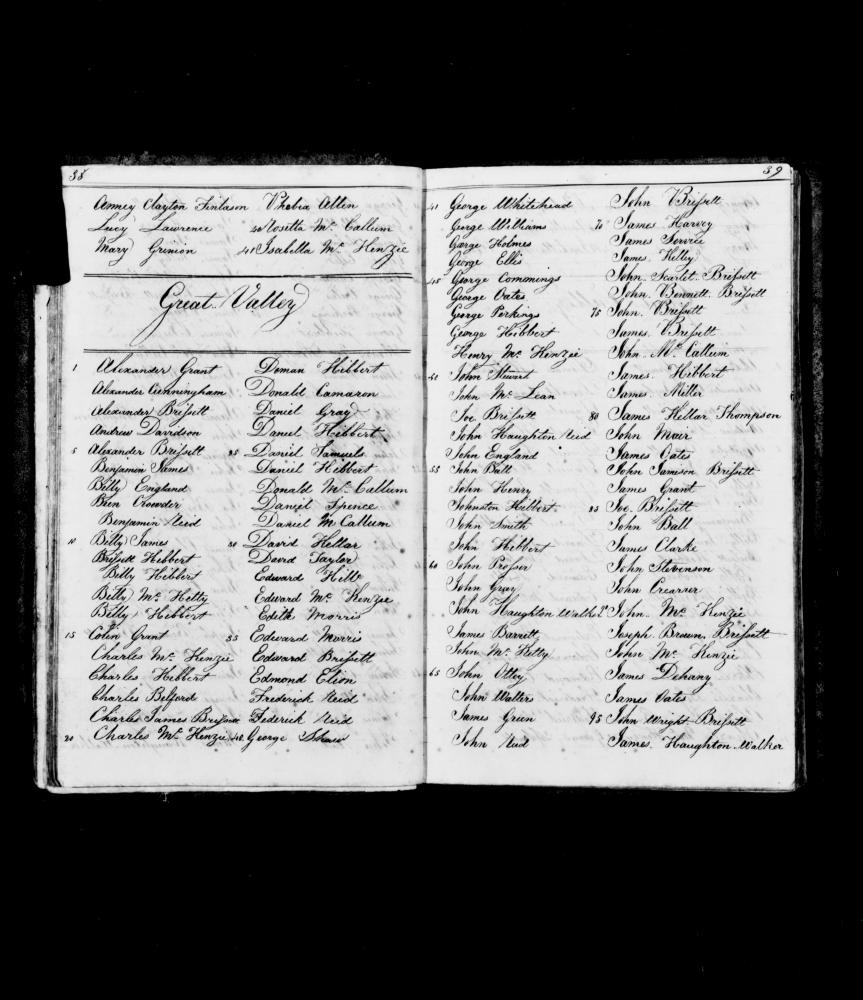 38
Anney Clayton Finlason
Lucy Lawrence
Mary Grinion
Phebia Allen
40 Rosetta Mc. Callum
41 Isabella Mc. Kenzie
Great Valley
1 Alexander Grant
Alexander Cunningham
Alexander Brissett
Andrew Davidson
5 Alexander Brissett
Benjamin James
Billy England
Ben Crowder
Benjamin Reid
10 Billy James
Brissett Hibbert
Billy Hibbert
Billy Mc. Kelly
Billy Hibbert
15 Colin Grant
Charles Mc. Kenzie
Charles Hibbert
Charles Belford
Charles James Brissett
20 Charles Mc. Kenzie
Deman Hibbert
Donald Camaron
Daniel Gray
Daniel Hibbert
25 Daniel Samuels
Daniel Hibbert
Donald Mc. Callum
Daniel Spence
Daniel Mc Callum
30 David Kellar
David Taylor
Edward Hill
Edward Mc. Kenzie
Edith Morris
35 Edward Morris
Edward Brissett
Edmond Elion
Frederick Reid
Federick Reid
40 George Shaw
39
41 George Whitehead
George Williams
George Holmes
George Ellis
45 George Commings
George Oates
George Perkings
George Hibbert
Henry Mc. Kenzie
50 John Stewart
John Mc. Lean
Joe Brissett
John Haughton Reid
John England
55 John Ball
John Henry
Johnston Hibbert
John Smith
John Hibbert
60 John Prosser
John Gray
John Haughton Walker
James Barrett
John Mc. Kelly
65 John Ottey
John Walters
James Green
John Reid
John Brissett
70 James Harvey
James Service
James Kelley
John Scarlet Brissett
John Bennett Brissett
75 John Brissett
James Brissett
John Mc. Callum
James Hibbert
James Miller
80 James Kellar Thompson
John Mair
James Oates
John Jameson Brissett
James Grant
85 Joe. Brissett
John Ball
James Clarke
John Stevenson
John Crearser
John Mc. Kenzie
Joseph Brown Brissett
John Mc. Kenzie
James Dehany
James Oates
95 John Wright Brissett
James Haughton Walker